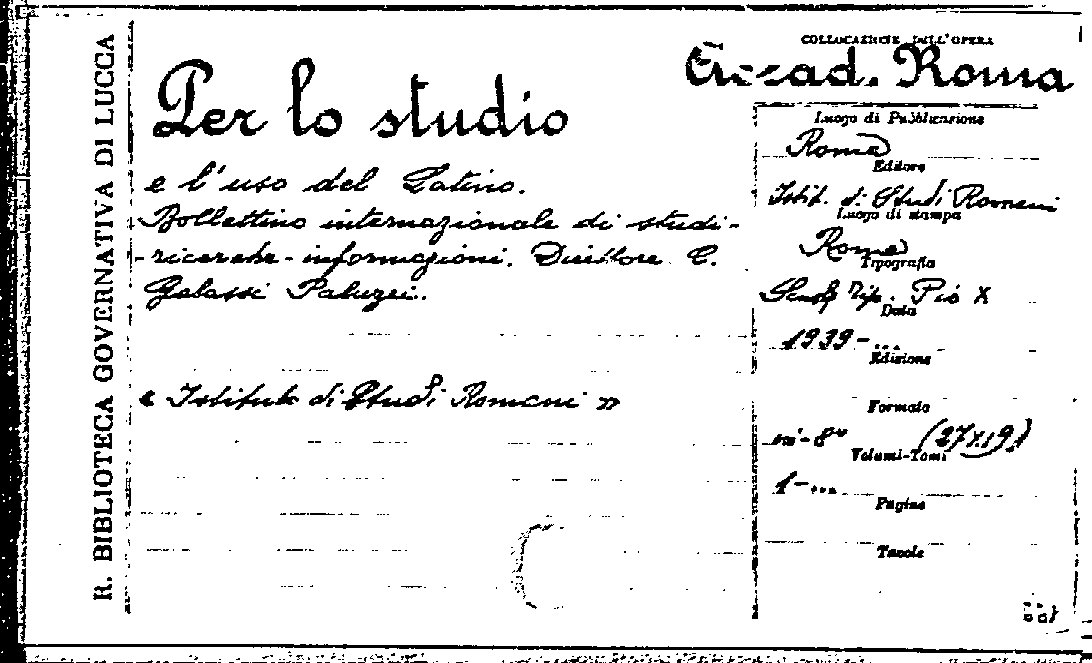 R. BIBLIOTECA GOVERNATIVA DI LUCCA
Per lo studio
e l'uso del Latino.
Bollettino internazionale di studi-
-ricerche-informazioni. Direttore C.
Galassi Paluzzi.
« Istituto di Studi Romani »
COLLOCAZIONE DELL'OPERA
Accad. Roma
Luogo di Pubblicazione
Roma
Editore
Istit. di Studi Romani
Luogo di stampa
Roma
Tipografia
Scuola Tip. Pio X
Data
1939-...
Edizione
Formato
in-8° (27x19)
Volumi-Tomi
1-...
Pagine
Tavole